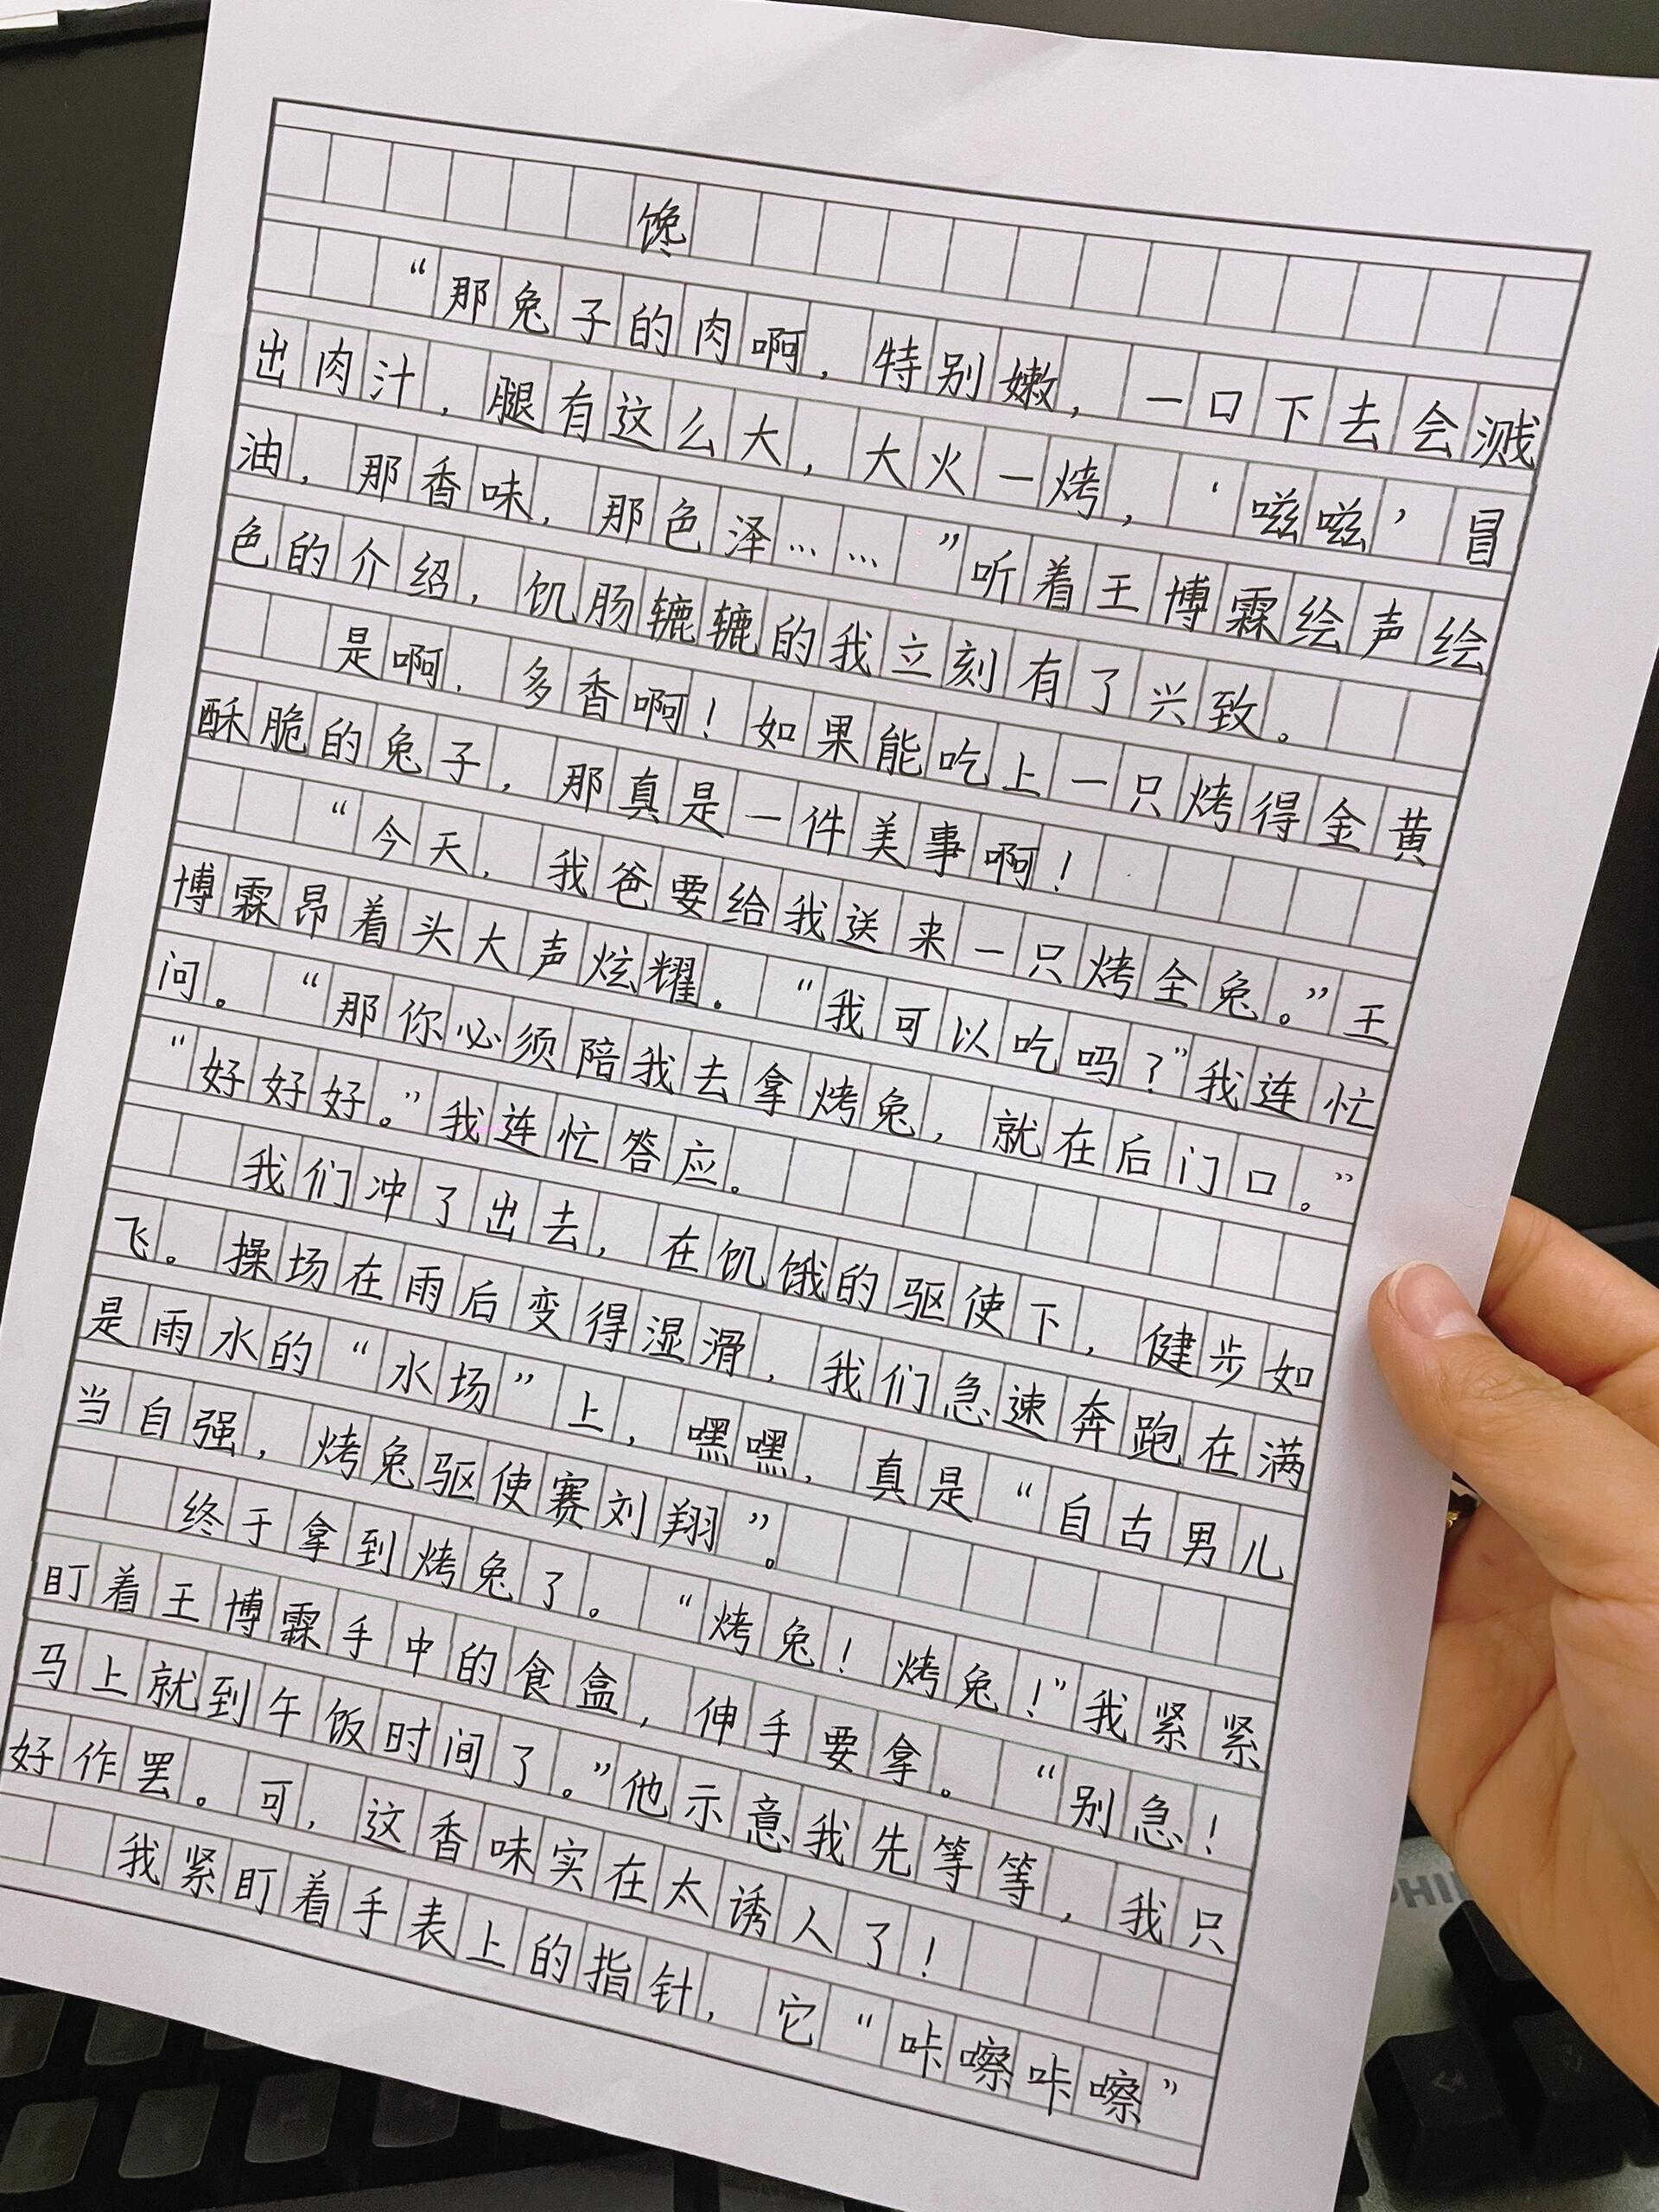 馋
“那兔子的肉啊，特别嫩，一口下去会溅
出肉汁，腿有这么大，大火一烤，‘嗞嗞’冒
油，那香味，那色泽……”听着王博霖绘声绘
色的介绍，饥肠辘辘的我立刻有了兴致。
是啊，多香啊！如果能吃上一只烤得金黄
酥脆的兔子，那真是一件美事啊！
“今天，我爸要给我送来一只烤全兔。”王
博霖昂着头大声炫耀。“我可以吃吗？”我连忙
问。“那你必须陪我去拿烤兔，就在后门口。”
“好好好。”我连忙答应。
我们冲了出去，在饥饿的驱使下，健步如
飞。操场在雨后变得湿滑，我们急速奔跑在满
是雨水的“水场”上，嘿嘿，真是“自古男儿
当自强，烤兔驱使赛刘翔”。
终于拿到烤兔了。“烤兔！烤兔！”我紧紧
盯着王博霖手中的食盒，伸手要拿。“别急！
马上就到午饭时间了。”他示意我先等等，我只
好作罢。可，这香味实在太诱人了！
我紧盯着手表上的指针，它“咔嚓咔嚓”
PHI